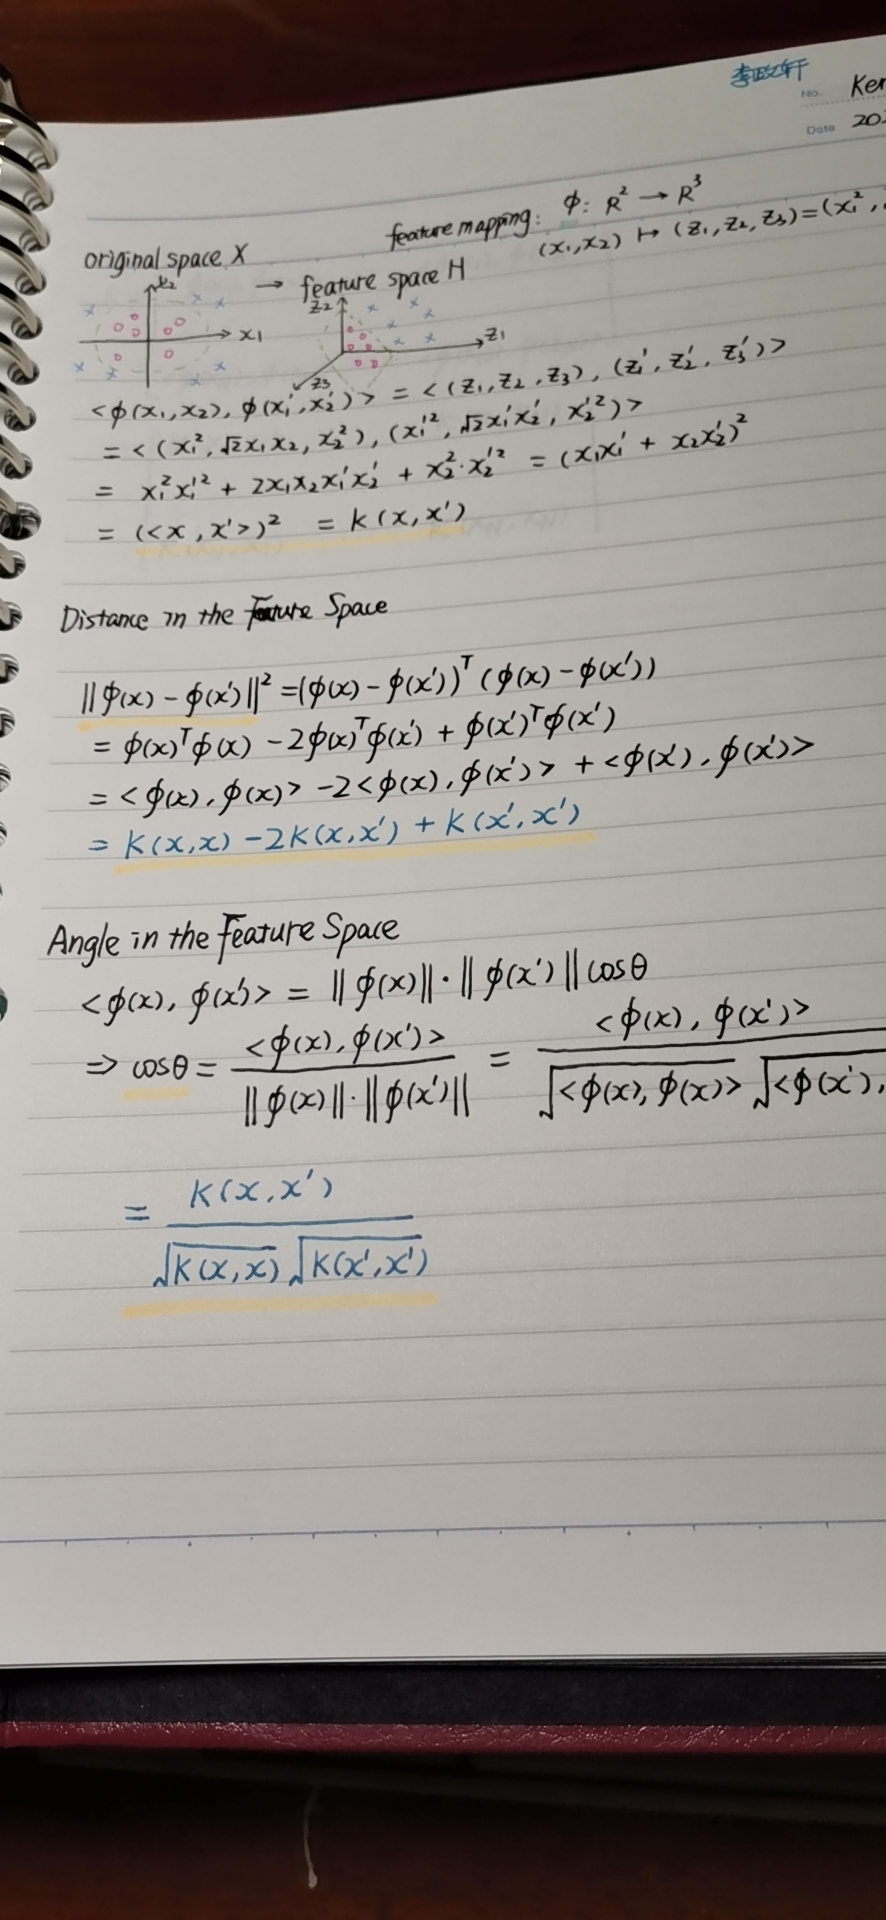 李政轩
No. Ker
Date 202
feature mapping: ϕ: R² → R³
(x₁,x₂) ↦ (z₁,z₂,z₃)=(x₁²,
original space X → feature space H
x₂
x₁
z₂
z₁
z₃
<ϕ(x₁,x₂), ϕ(x₁',x₂')> = <(z₁,z₂,z₃), (z₁',z₂',z₃')>
= <(x₁²,√2x₁x₂,x₂²), (x₁'²,√2x₁'x₂',x₂'²)>
= x₁²x₁'² + 2x₁x₂x₁'x₂' + x₂²·x₂'² = (x₁x₁' + x₂x₂')²
= (<x,x'>)² = K(x,x')
Distance in the Feature Space
||ϕ(x) − ϕ(x')||² = (ϕ(x) − ϕ(x'))ᵀ(ϕ(x) − ϕ(x'))
= ϕ(x)ᵀϕ(x) − 2ϕ(x)ᵀϕ(x') + ϕ(x')ᵀϕ(x')
= <ϕ(x),ϕ(x)> − 2<ϕ(x),ϕ(x')> + <ϕ(x'),ϕ(x')>
= K(x,x) − 2K(x,x') + K(x',x')
Angle in the Feature Space
<ϕ(x), ϕ(x')> = ||ϕ(x)||·||ϕ(x')|| cosθ
⇒ cosθ = <ϕ(x),ϕ(x')> / ||ϕ(x)||·||ϕ(x')|| = <ϕ(x),ϕ(x')> / √<ϕ(x),ϕ(x)> √<ϕ(x'),
= K(x,x') / √K(x,x) √K(x',x')